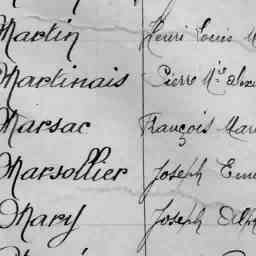 Martin Henri Louis
Martinais Pierre M.ie
Marsac François
Marsollier Joseph
Mary Joseph